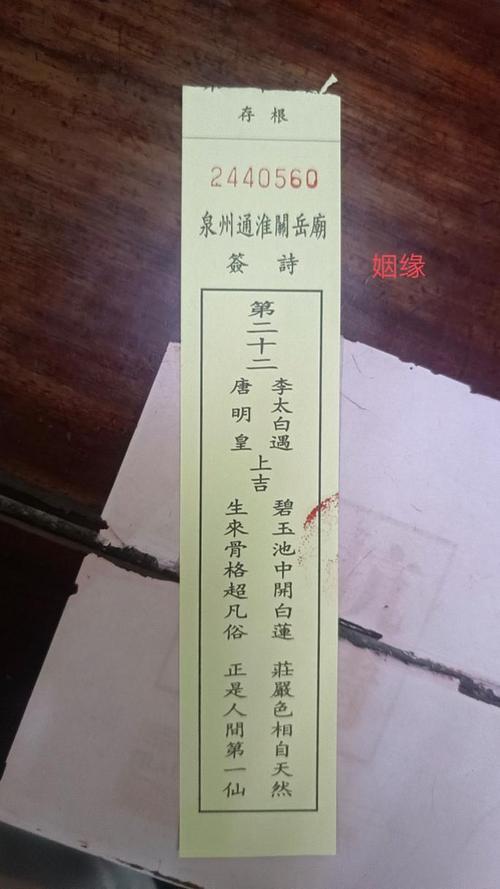 存根
2440560
泉州通淮關岳廟
籤詩
姻缘
第二十二
李太白遇
唐明皇
上吉
碧玉池中開白蓮
莊嚴色相自天然
生來骨格超凡俗
正是人間第一仙